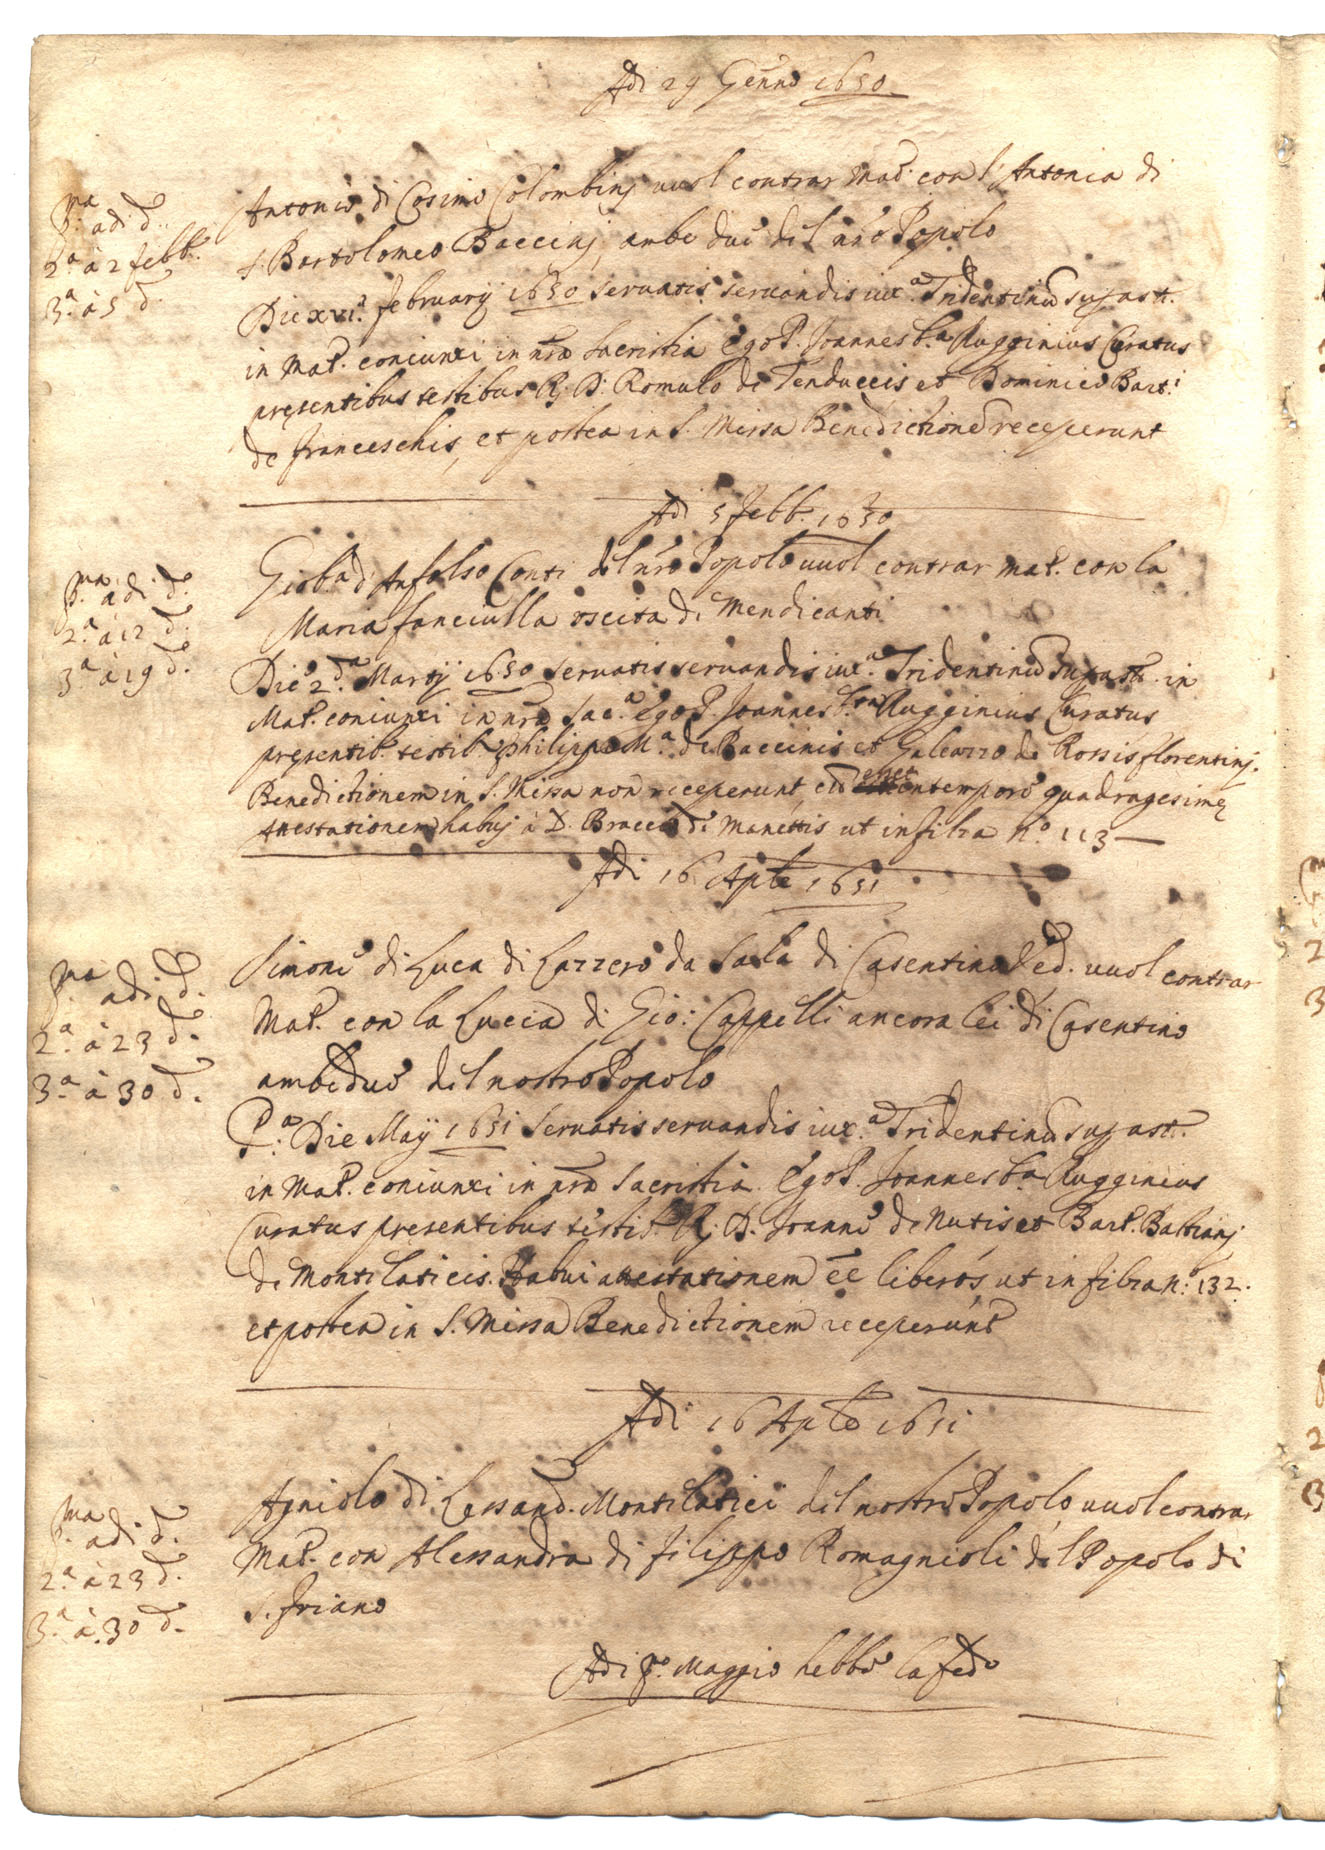 Adi 29 Genn.o 1650
p.ma adi d.o
2.a à 2 febb.
3.a à 5 d.
Antonio di Cosimo Colombinj vuol contrar Mat. con l'Antonia di
Bartolomeo Baccinj, ambe due del nrō Popolo
Die xvi. februarij 1650 Seruatis seruandis iux.a Tridentinū
in Mat. coniunxi in nrā Sacristia Ego P. Joannes B.a Rugginius Curatus
presentibus testibus R. D. Romulo de Tenduccis et Dominico Bart.i
de franceschis, et postea in S. Missa Benedictionē receperunt
Adi 5 febb. 1650
p.ma adi d.
2.a à 12 d.
3.a à 19 d.
Gio:ba d'Anfolso Conti del nrō Popolo vuol contrar mat. con la
Maria fanciulla uscita di Mendicanti
Die 2.da Martij 1650 Seruatis seruandis iux.a Tridentinū in
Mat. coniunxi in nrā Sac.a Ego P. Joannes B.a Rugginius Curatus
presentib. testib. Philippo M.a de Baccinis et Galeazzo de Rossis florentinj.
Benedictionem in S. Missa non receperunt, cū esset tempore quadragesimę
Attestationem habuj à D. Braccio de Manettis ut in filza n.o 113
Adi 16 Aprle 1651
p.ma adi d.
2.a à 23 d.
3.a à 30 d.
Simone di Luca di Lazzero da Sala di Casentino vuol contrar
Mat. con la Lucia di Gio: Cappelli ancora lei di Casentino
ambedue del nostro Popolo
P.a Die Maij 1651 Seruatis seruandis iux.a Tridentinū
in Mat. coniunxi in nrā Sacristia Ego P. Joannes B.a Rugginius
Curatus presentibus testib. R. D. Joanne de Nutis et Bart. Bastianj
de Montilaticis. Habui attestationem eē liberos ut in filza n.o 132.
et postea in S. Missa Benedictionem receperunt
Adi 16 Aprle 1651
p.ma adi d.
2.a à 23 d.
3.a à 30 d.
Agniolo di Lessand. Montilatici del nostro Popolo vuol contrar
Mat. con Alessandra di filippo Romagnioli del Popolo di
S. friano
Adi p.o Maggio hebbe la fede